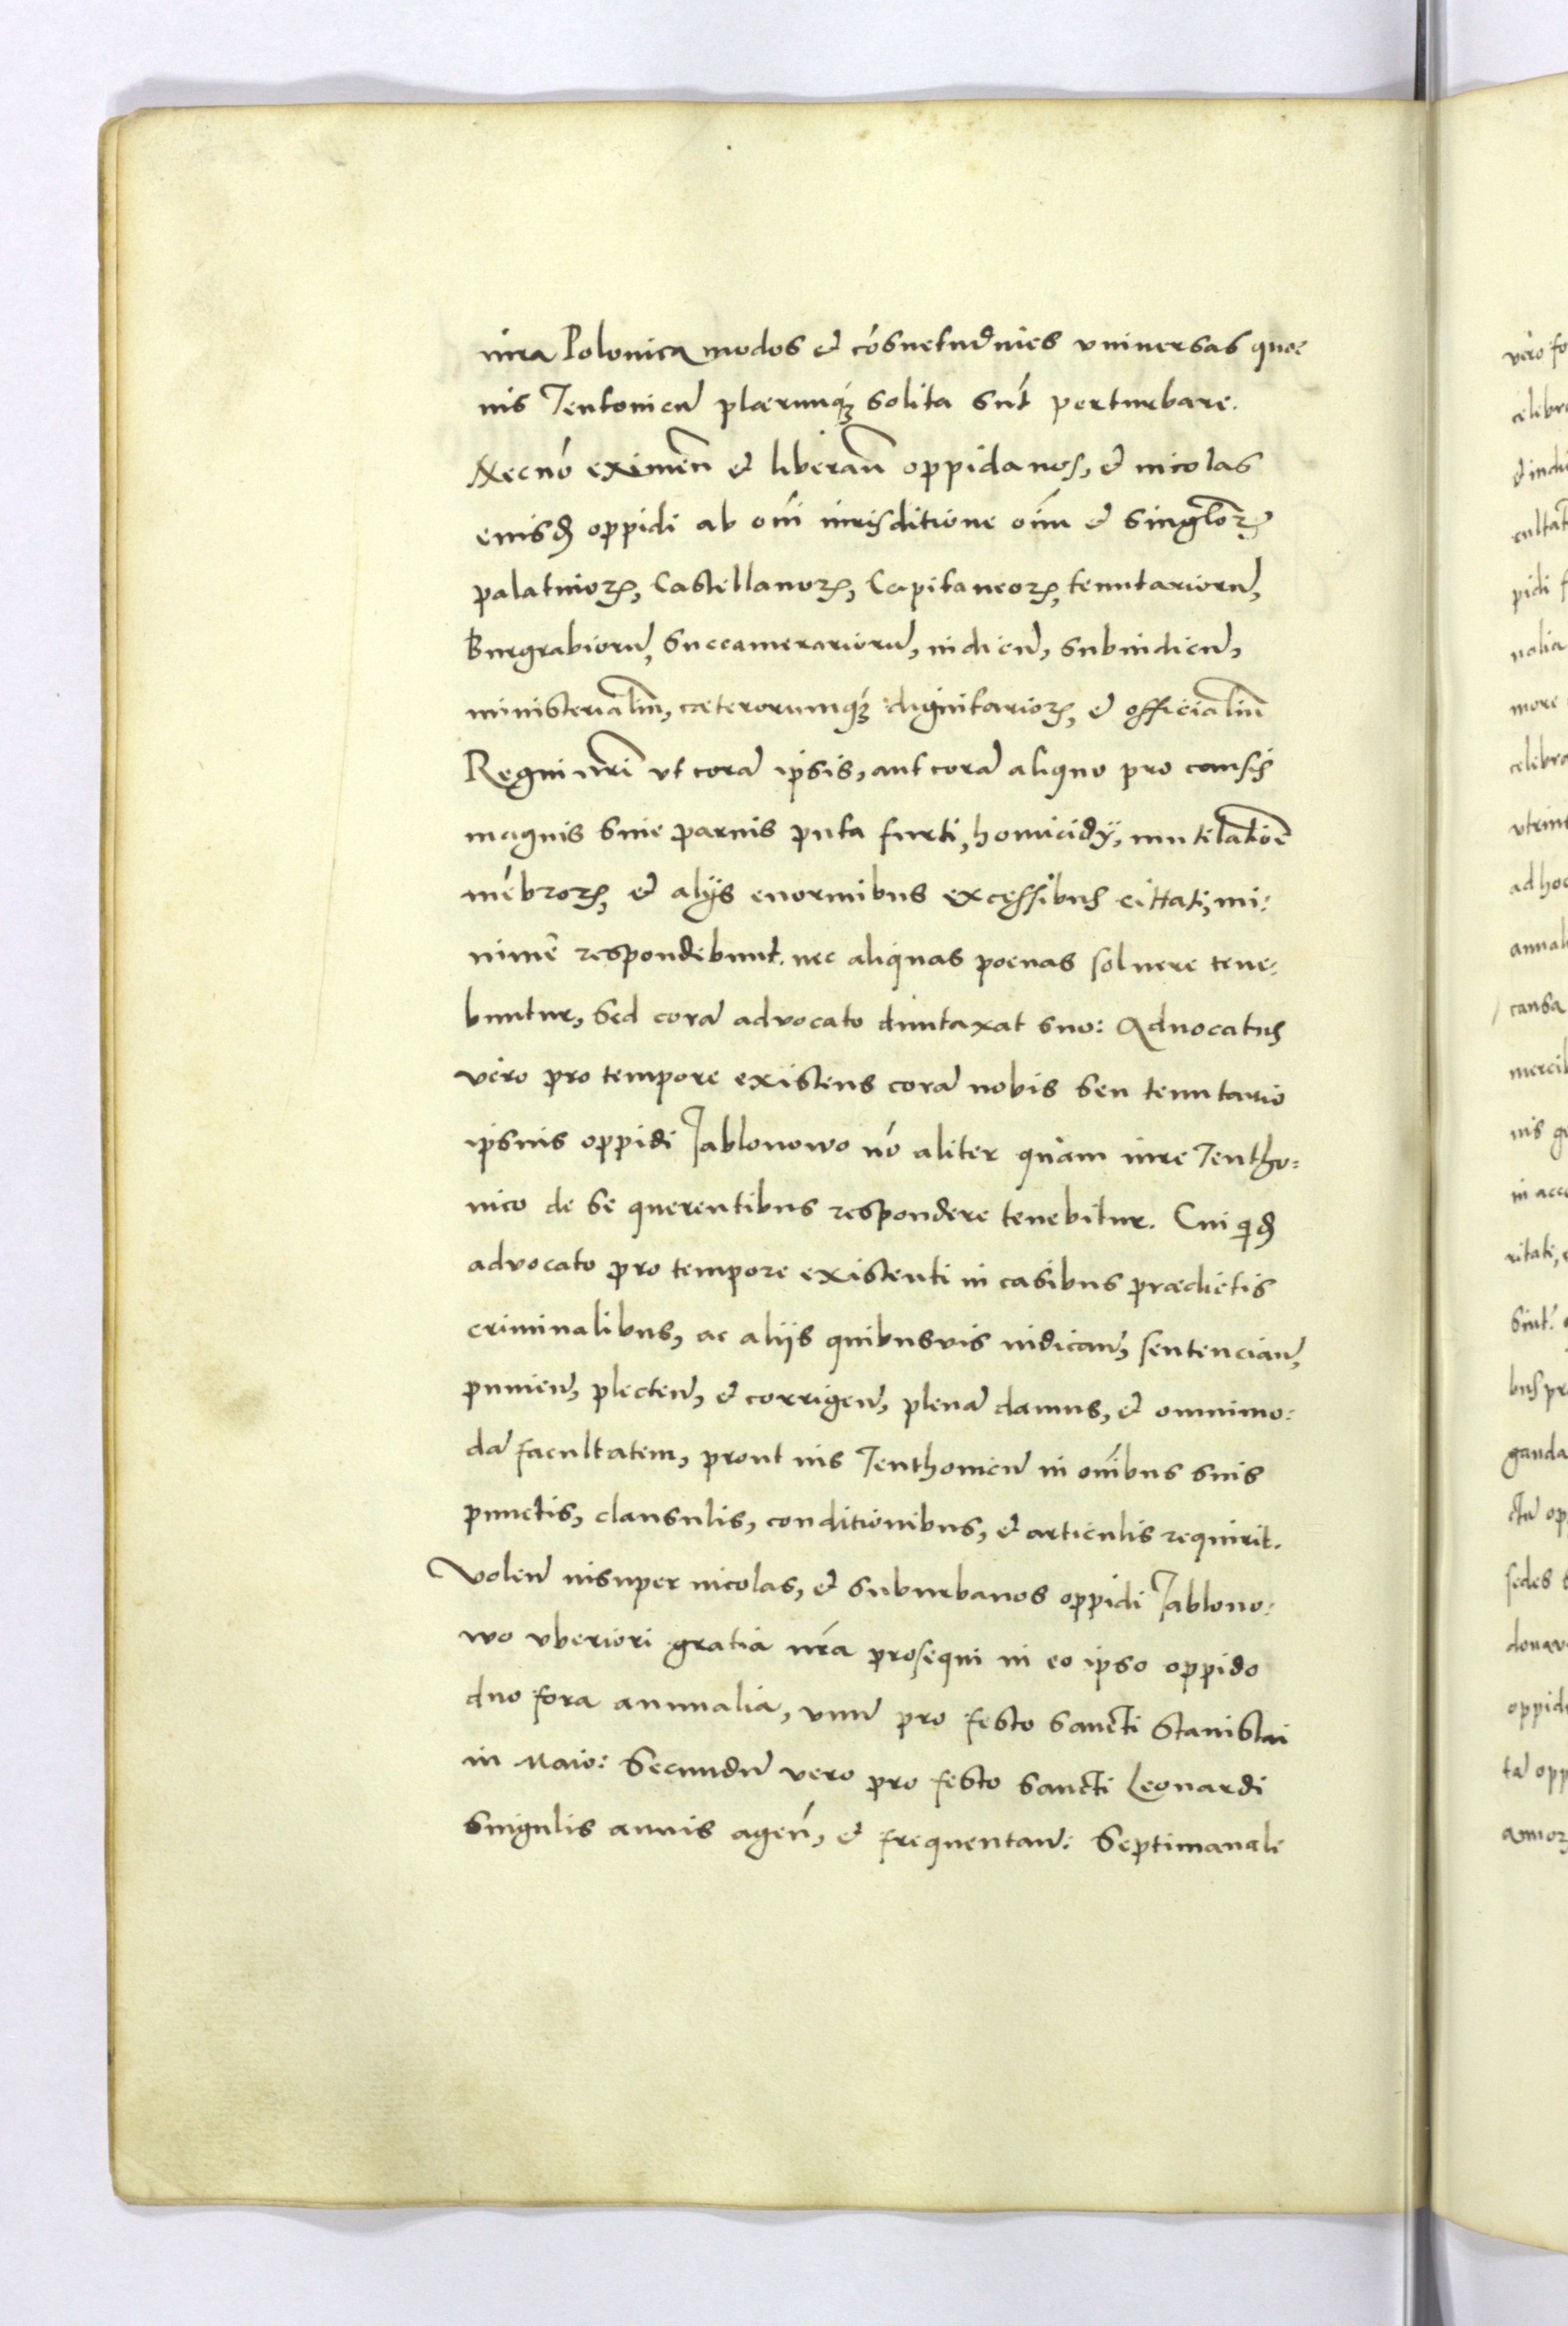 iura Polonica modos et cósuetudines vniuersas quae
ius Teutonicū plærunq́ꝫ solita sút perturbare.
Necnó eximeñ et liberañ oppidanos, et incolas
eiusdē oppidi ab oḿi iurisditione oím et singloꝝ
palatinoꝝ, Castellanoꝝ, Capitaneoꝝ, tenutariorū,
Burgrabiorū, Succamerariorū, iudicū, subiudicū,
ministerialiū, cæterorumq́ꝫ dignitarioꝝ, et officialiū
Regni nr̄i vt corā ipsis, aut corā aliquo pro causis
magnis siue paruis puta furti, homicidÿ, mutilatiōe
mébroꝝ, et alÿs enormibus excessibus cittati, mi:
nimē respondebunt. nec aliquas poenas soluere tene:
buntur, Sed corā advocato duntaxat suo: Aduocatus
véro pro tempore existens corā nobis seu tenutario
ipsius oppidi Jablonowo nó aliter quàm iure Teutho:
nico de se querentibus respondere tenebitur. Cui qdē
advocato pro tempore existenti in casibus prædictis
criminalibus, ac aliis quibusvis iudicanđ, sentencianđ,
punienđ, plectenđ, et corrigenđ, plenā damus, et omnimo:
dā facultatem, prout ius Teuthonicū in oḿibus suis
punctis, clausulis, conditionibus, et articulis requirit.
Volenđ insuper incolas, et suburbanos oppidi Jablono:
wo vberiori gratia nr̄a prosequi in eo ipso oppido
duo fora annualia, vnū pro festo Sancti Stanislai
in Maio: Secundū vero pro festo Sancti Leonardi
Singulis annis ageń, et frequentanđ: Septimanale